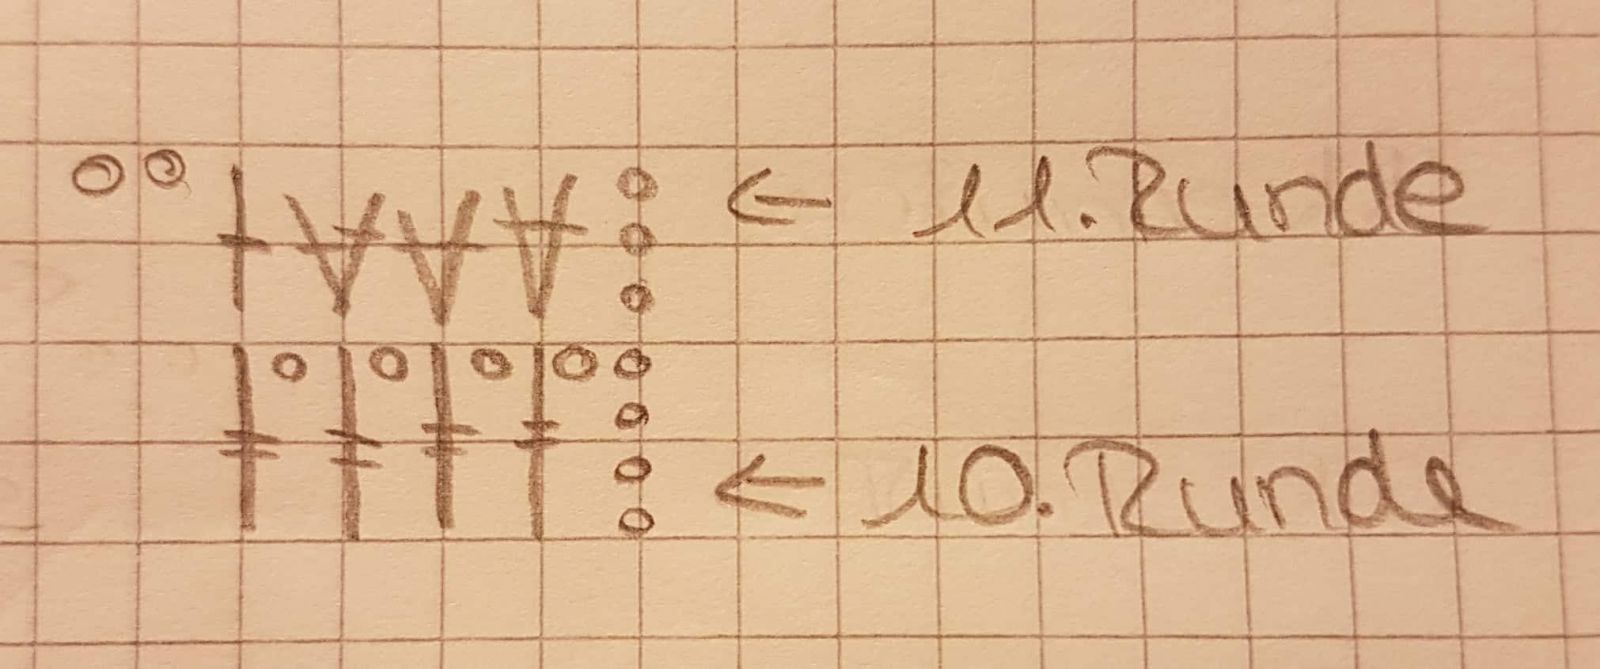 ← 11. Runde
← 10. Runde